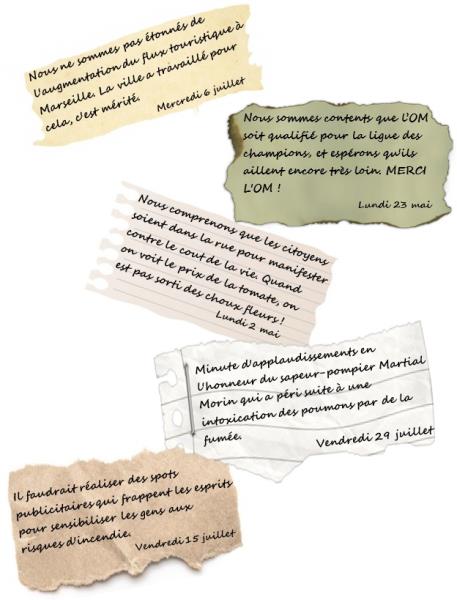 Nous ne sommes pas étonnés de
l'augmentation du flux touristique à
Marseille. La ville a travaillé pour
cela, c'est mérité.
Mercredi 6 juillet
Nous sommes contents que l'OM
soit qualifié pour la ligue des
champions, et espérons qu'ils
aillent encore très loin. MERCI
L'OM !
Lundi 23 mai
Nous comprenons que les citoyens
soient dans la rue pour manifester
contre le cout de la vie. Quand
on voit le prix de la tomate, on
est pas sorti des choux fleurs !
Lundi 2 mai
Minute d'applaudissements en
l'honneur du sapeur-pompier Martial
Morin qui a péri suite à une
intoxication des poumons par de la
fumée.
Vendredi 29 juillet
Il faudrait réaliser des spots
publicitaires qui frappent les esprits
pour sensibiliser les gens aux
risques d'incendie.
Vendredi 15 juillet